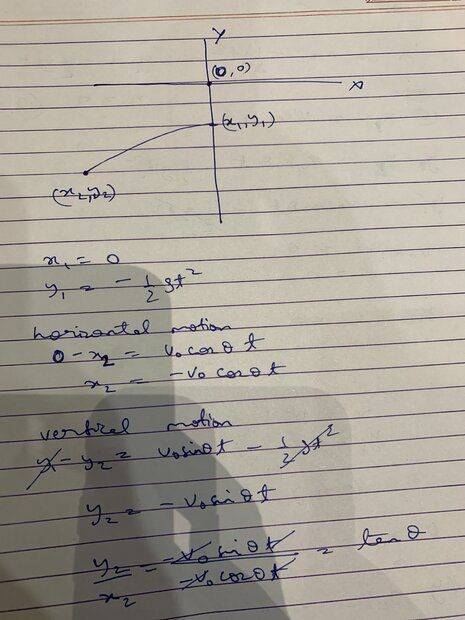 Y
(0,0)
X
(x₁, y₁)
(x₂, y₂)
x₁ = 0
y₁ = - 1/2 gt²
horizontal motion
0 - x₂ = v₀ cos θ t
x₂ = - v₀ cos θ t
vertical motion
y₁ - y₂ = v₀ sin θ t - 1/2 gt²
y₂ = - v₀ sin θ t
y₂/x₂ = - v₀ sin θ t / - v₀ cos θ t = tan θ